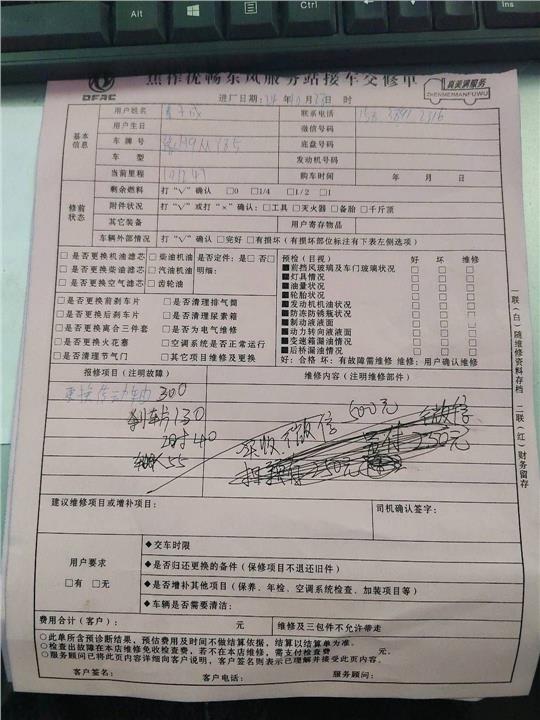 Alt
Ctrl
Ins
DFAC
焦作优畅东风服务站接车交修单
真美满服务
ZHENMEIMANFUWU
进厂日期: 年 月 日 时
基本信息
用户姓名
联系电话
用户生日
微信号码
车牌号
底盘号码
车型
发动机号码
当前里程
购车时间 年 月 日
修前状态
剩余燃料 打“√”确认 □0 □1/4 □1/2 □1
附件状况 打“√”或打“×”确认:□工具 □灭火器 □备胎 □千斤顶
其它装备 用户寄存物品
车辆外部情况 打“√”确认 □完好 □有损坏(有损坏部位标注有下表左侧选项)
□是否更换机油滤芯 □柴油机油 是否定件:是□否□
□是否更换柴油滤芯 □汽油机油 明细:
□是否更换空气滤芯 □齿轮油
□是否更换前刹车片 □是否清理排气筒
□是否更换后刹车片 □是否清理尿素箱
□是否更换离合三件套 □是否为电气维修
□是否更换火花塞 □空调系统是否正常运行
□是否清理节气门 □其它项目维修及更换
预检(目视) 好 坏 维修
■前挡风玻璃及车门玻璃状况 □ □ □
■灯具情况 □ □ □
■油量状况 □ □ □
■轮胎状况 □ □ □
■发动机机油状况 □ □ □
■防冻防锈瓶状况 □ □ □
■制动液液面 □ □ □
■动力转向液液面 □ □ □
■变速箱漏油情况 □ □ □
■后桥漏油情况 □ □ □
好:合格 坏:有故障需维修 维修:用户确认维修
报修项目(注明故障) 维修内容(注明维修部件)
300
刹车片130
600元
40
55
250元
350元
建议维修项目或增补项目:
司机确认签字:
用户要求
□有 □无
◆交车时限
◆是否归还更换的备件(保修项目不退还旧件)
◆是否增补其他项目(保养、年检、空调系统检查、加装项目等)
◆车辆是否需要清洁:
费用合计(客户): 元 维修及三包件不允许带走
○此单所含预诊断结果,预估费用及时间不做结算依据,结算以结算单为准。
○检查出故障在本店维修免收检查费,若不在本店维修,需支付检查费 元。
○服务顾问已将此页内容详细向客户说明,客户签名则表示已理解并接受此页内容。
客户签名: 客户电话: 服务顾问:
一联(白)随维修资料存档 二联(红)财务留存